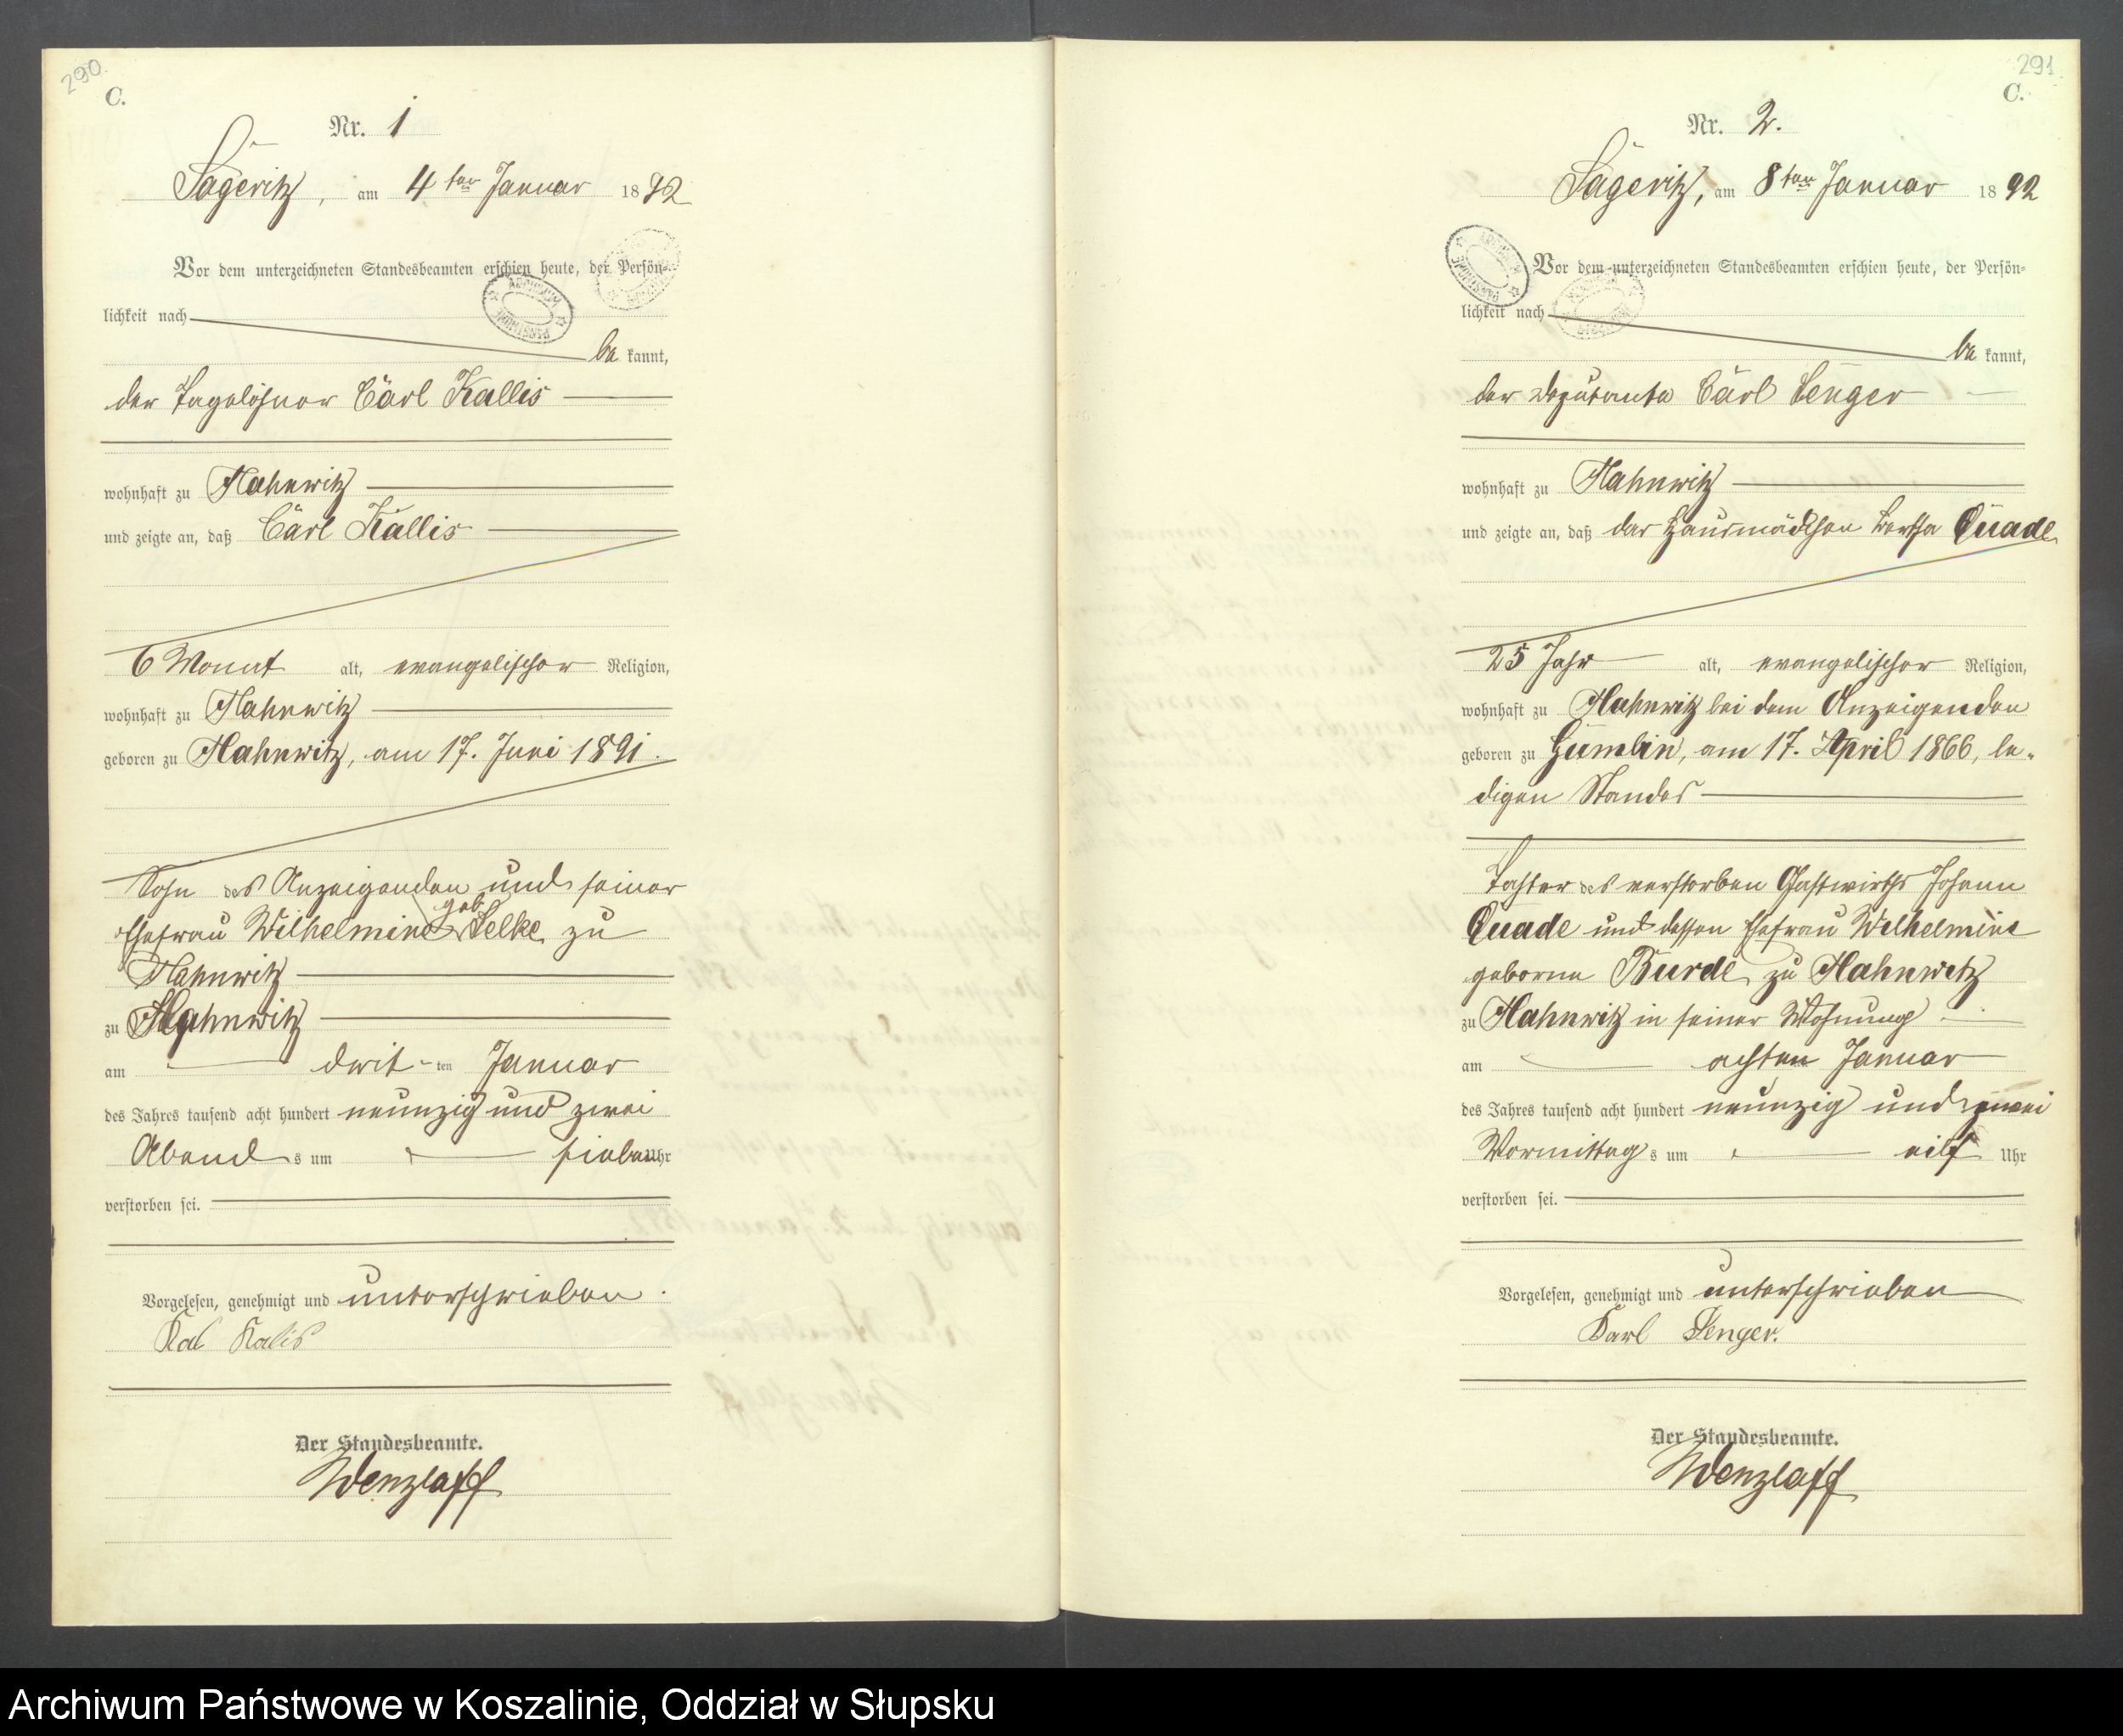 290.
C.
Nr. 1
Sageritz, am 4ten Januar 1892
Vor dem unterzeichneten Standesbeamten erschien heute, der Persön-
lichkeit nach
be kannt,
der Tagelöhner Carl Kallis
wohnhaft zu Hahnwitz
und zeigte an, daß Carl Kallis
6 Monat alt, evangelischer Religion,
wohnhaft zu Hahnwitz
geboren zu Hahnwitz, am 17. Juni 1891.
Sohn des Anzeigenden und seiner
Ehefrau Wilhelmine geb Selke zu
Hahnwitz
zu Hahnwitz
am drit-ten Januar
des Jahres tausend acht hundert neunzig und zwei
Abends um sieben Uhr
verstorben sei.
Vorgelesen, genehmigt und unterschrieben.
Kal Kalis
Der Standesbeamte.
Wenzlaff
291
C.
Nr. 2.
Sageritz, am 8ten Januar 1892
Vor dem unterzeichneten Standesbeamten erschien heute, der Persön-
lichkeit nach
be kannt,
der Deputante Carl Senger
wohnhaft zu Hahnwitz
und zeigte an, daß das Hausmädchen Bertha Quade
25 Jahr alt, evangelischer Religion,
wohnhaft zu Hahnwitz bei dem Anzeigenden
geboren zu Gumbin, am 17. April 1866, le-
digen Standes
Tochter des verstorben Gastwirths Johann
Quade und dessen Ehefrau Wilhelmine
geborne Burde zu Hahnwitz
zu Hahnwitz in seiner Wohnung
am achten Januar
des Jahres tausend acht hundert neunzig und zwei
Vormittags um eilf Uhr
verstorben sei.
Vorgelesen, genehmigt und unterschrieben
Karl Senger.
Der Standesbeamte.
Wenzlaff
Archiwum Państwowe w Koszalinie, Oddział w Słupsku